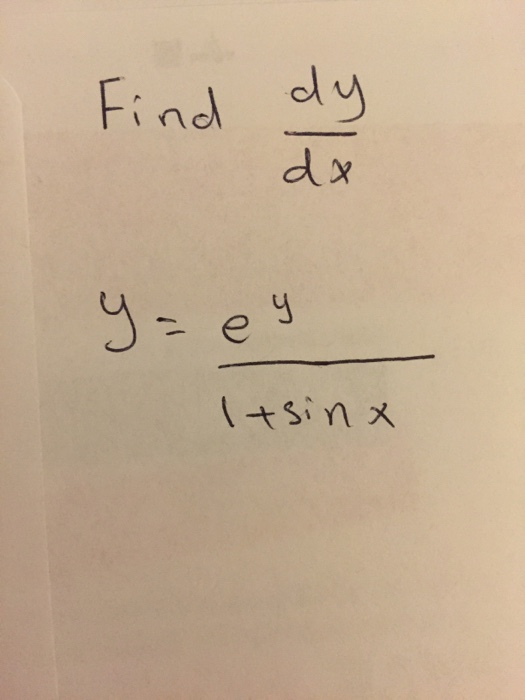 Find dy/dx
y = e^y/(1+sin x)